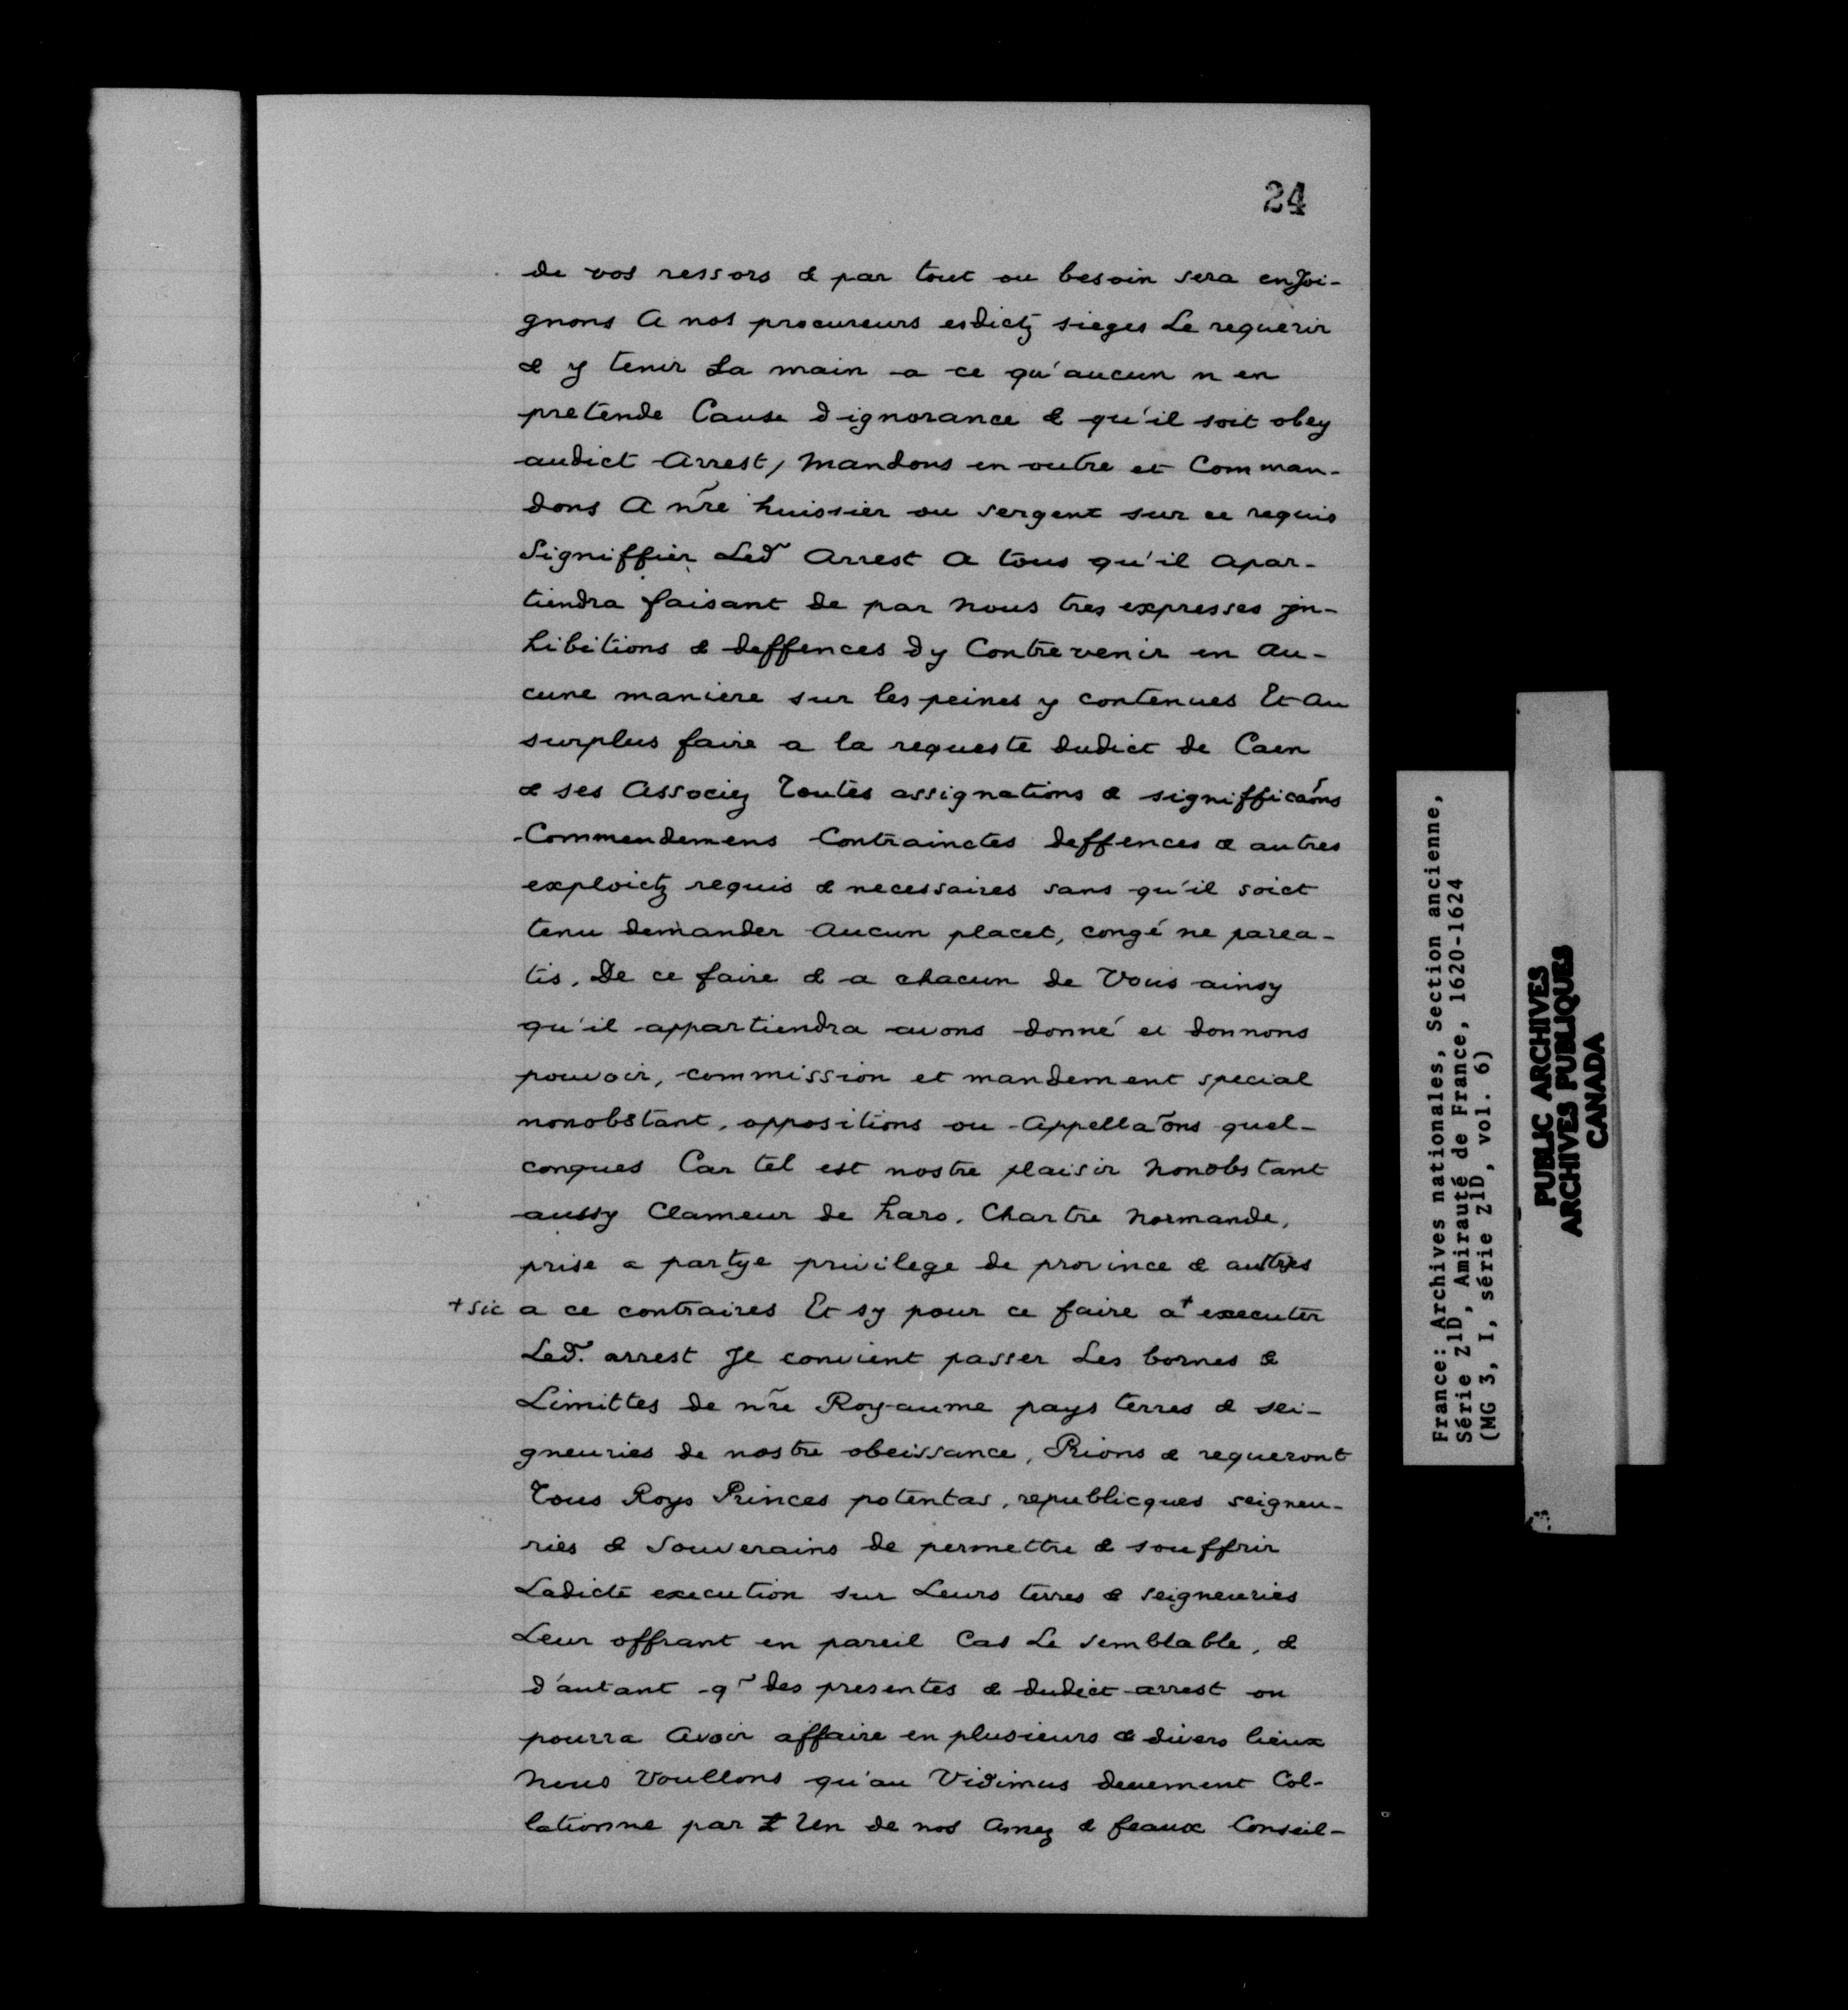 24
de vos ressors & par tout ou besoin sera enjoi-
gnons A nos procureurs esdictz sieges Le requerir
& y tenir La main a ce qu'aucun n en
pretende Cause d ignorance & qu'il soit obey
audict Arrest, Mandons en outre et Comman-
dons A nr̃e huissier ou sergent sur ce requis
Signiffier Led̃ Arrest A tous qu'il Apar-
tiendra faisant de par Nous tres expresses jn-
hibitions & deffences dy Contrevenir en Au-
cune maniere sur les peines y contenues Et Au
surplus faire a la requeste dudict de Caen
& ses Associez Toutes assignations & signifficaõns
Commendemens Contrainctes deffences & autres
exploictz requis & necessaires sans qu'il soict
tenu demander Aucun placet, congé ne parea-
tis. De ce faire & a chacun de Vous ainsy
qu'il appartiendra avons donné et donnons
pouvoir, commission et mandement special
nonobstant, oppositions ou Appellaõns quel-
conques Car tel est nostre plaisir Nonobstant
aussy Clameur de haro. Chartre Normande,
prise a partye privilege de province & autres
+ sic a ce contraires Et sy pour ce faire a+ executer
Led̃. arrest Jl convient passer Les bornes &
Limittes de nr̃e Royaume pays terres & sei-
gneuries de nostre obeissance, Prions & requeront
Tous Roys Princes potentas, republicques seigneu-
ries & Souverains de permettre & souffrir
Ladicte execution sur Leurs terres & seigneuries
Leur offrant en pareil Cas Le semblable, &
d'autant q̃ des presentes & dudict arrest on
pourra Avoir affaire en plusieurs & divers lieux
Nous Voullons qu'au Vidimus deuement Col-
lationne par Un de nos Amez & feaux Conseil-
France: Archives nationales, Section ancienne,
Série Z1D, Amirauté de France, 1620-1624
(MG 3, I, série Z1D, vol. 6)
PUBLIC ARCHIVES
ARCHIVES PUBLIQUES
CANADA